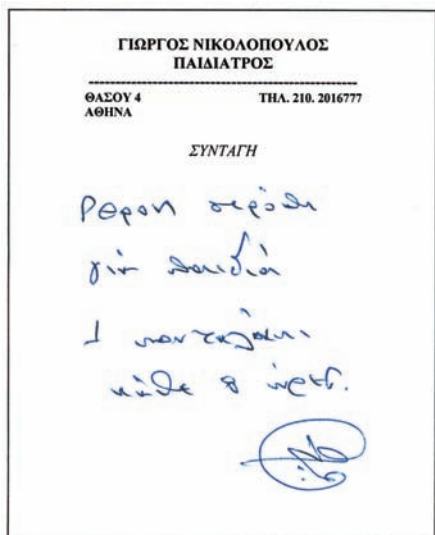 ΓΙΩΡΓΟΣ ΝΙΚΟΛΟΠΟΥΛΟΣ
ΠΑΙΔΙΑΤΡΟΣ
ΘΑΣΟΥ 4 ΤΗΛ. 210. 2016777
ΑΘΗΝΑ
ΣΥΝΤΑΓΗ
σιρόπι
για παιδιά
1 κουταλάκι
κάθε 8 ώρες.